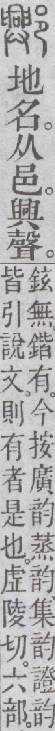 地名。从邑。興聲。
鉉無鍇有。今按廣韵蒸韵集韵證韵
皆引說文。則有者是也。虛陵切。六部。